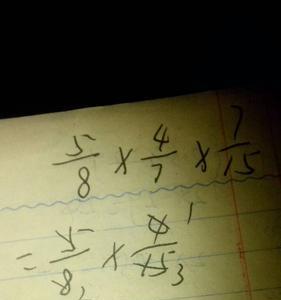 5/8 × 4/7 × 7/15
= 5/8 2 × 4 1/15 3